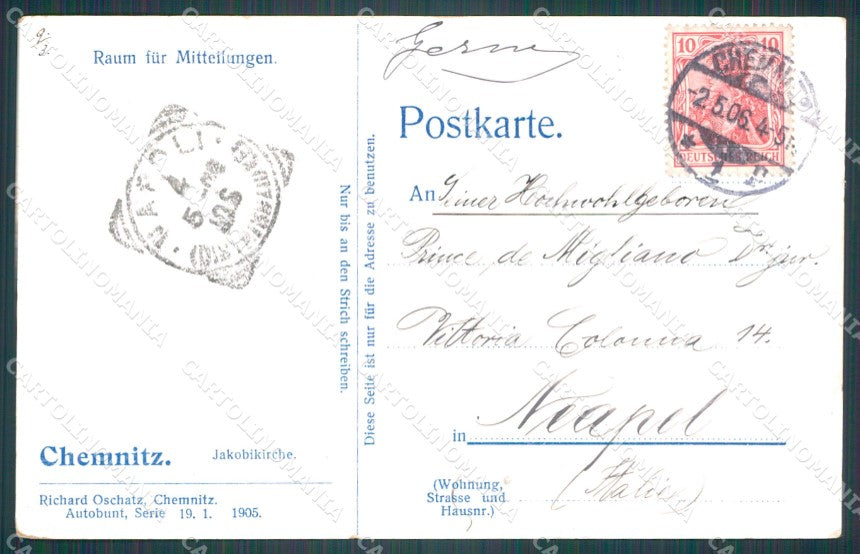 9/3.
Raum für Mitteilungen.
NAPOLI
4
5
06
Nur bis an den Strich schreiben.
Diese Seite ist nur für die Adresse zu benutzen.
Chemnitz. Jakobikirche.
Richard Oschatz, Chemnitz.
Autobunt, Serie 19. 1. 1905.
10 10
DEUTSCHES REICH
CHEMNITZ
-2.5.06. 4-5
Postkarte.
An Seiner Hochwohlgeboren
Prince de Migliano Dr. jur.
Vittoria Colonna 14.
in Neapel
(Wohnung,
Strasse und
Hausnr.)
(Italien)
CARTOLINOMANIA